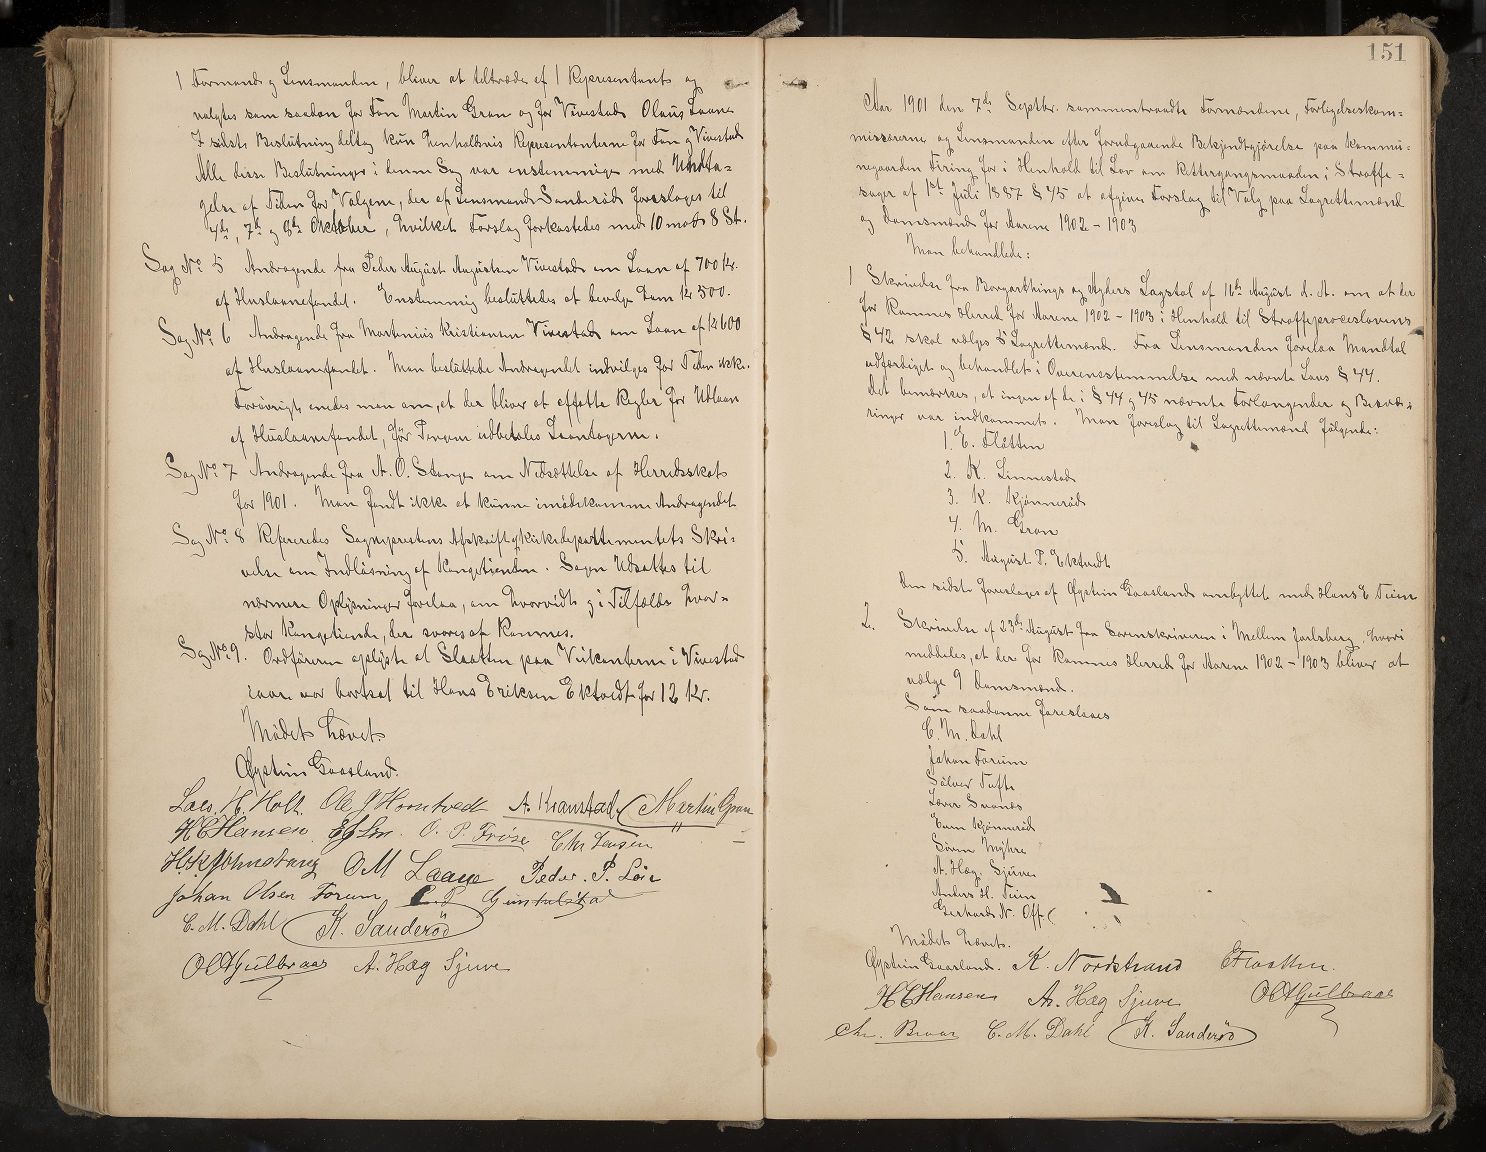 1 Formand og Lensmanden, bliver at tiltræde af 1 Repræsentant og
valgtes som saadan for Fon Martin Gran og for Vivestad Olaus Laane
I sidste Beslutning deltog kun henholdsvis Repræsentanterne for Fon og Vivestad
Alle disse Beslutninger i denne Sag var enstemmige med Undta-
gelse af Tiden for Valgene, der af Lensmand Sanderød foresloges til
4de, 7de og 8de Oktober, hvilket Forslag forkastedes med 10 mod 8 St.
Sag No 5 Andragende fra Peder August Augustsen Vivestad om Laan af 700 Kr.
af Huslaanefondet. Enstemmig besluttedes at bevilge ham Kr 500.
Sag No 6 Andragende fra Martinius Kristiansen Vivestad om Laan af Kr 600
af Huslaanefondet. Man besluttede Andragendet indvilges for Tiden ikke.
Forøvrigt enedes man om, at der bliver at affatte Regler for Udlaan
af Huslaanefondet, før Pengene udbetales Laantagerne.
Sag No 7 Andragende fra A. O. Stange om Nedsættelse af Herredsskat
for 1901. Man fandt ikke at kunne imødekomme Andragendet
Sag No 8 Refereredes Sognepræstens Afskrift af Kirkedepartementets Skri-
velse om Indløsning af Kongetienden. Sagen udsattes til
nærmere Oplysninger forelaa, om hvorvidt og i Tilfælde hvor-
stor Kongetiende, der svares af Ramnes.
Sag No 9. Ordføreren oplyste at Slaatten paa Veikanterne i Vivestad
iaar var bortsat til Hans Eriksen Ektvedt for 12 Kr.
Mødet hævet.
Øystein Gaasland.
Lars H. Holt. Ole J Horntvedt A. Kranstad Martin Gran
H C Hansen O. P. Frøse Chr Jensen
H. K. Johnstang O M Laane Peder. P. Løie
Johan Olsen Forum
C. M. Dahl K. Sanderød
O A Gulbraar A. Hæg Sjuve
151
Aar 1901 den 7de Septbr. sammentraadte Formændene, Forligelseskom-
missærerne og Lensmanden efter forudgaaende Bekjendtgjørelse paa Kommu-
negaarden Fering for i Henhold til Lov om Rettergangsmaaden i Straffe-
sager af 1ste Juli 1887 § 45 at afgive Forslag til Valg paa Lagrettemænd
og Domsmænd for Aarene 1902 - 1903
Man behandlede:
1 Skrivelse fra Borgarthings og Agders Lagstol af 16de August d. A. om at der
for Ramnes Herred for Aarene 1902 - 1903 i Henhold til Straffeproceslovens
§ 42 skal vælges 5 Lagrettemænd. Fra Lensmanden forelaa Mandtal
udfærdiget og behandlet i Overensstemmelse med nævnte Lovs § 44.
Det bemærkes, at ingen af de i § 44 og 45 nævnte Forlangender og Besvæ-
ringer var indkommet. Man foreslog til Lagrettemænd følgende:
1. E. Flåtten
2. K. Linnestad
3. K. Kjønnerød
4. M. Gran
5. August P. Ektvedt
Den sidste foresloges af Øystein Gaasland ombyttet med Hans E Teien
2. Skrivelse af 23de August fra Sorenskriveren i Mellem Jarlsberg, hvori
meddeles, at der for Ramnes Herred for Aarene 1902 - 1903 bliver at
vælge 9 Domsmænd.
Som saadanne foresloges
C. M. Dahl
Johan Forum
Sølver Tufte
Iver Svenås
Even Kjønnerød
Søren Myhre
A. Hæg. Sjuve
Anders H. Teien
Gerhard N. Off
Mødet hævet.
Øystein Gaasland. K. Nordstrand E Flaatten.
H C Hansen A. Hæg Sjuve O A Gulbraar
Chr. Bruar C. M. Dahl K. Sanderød